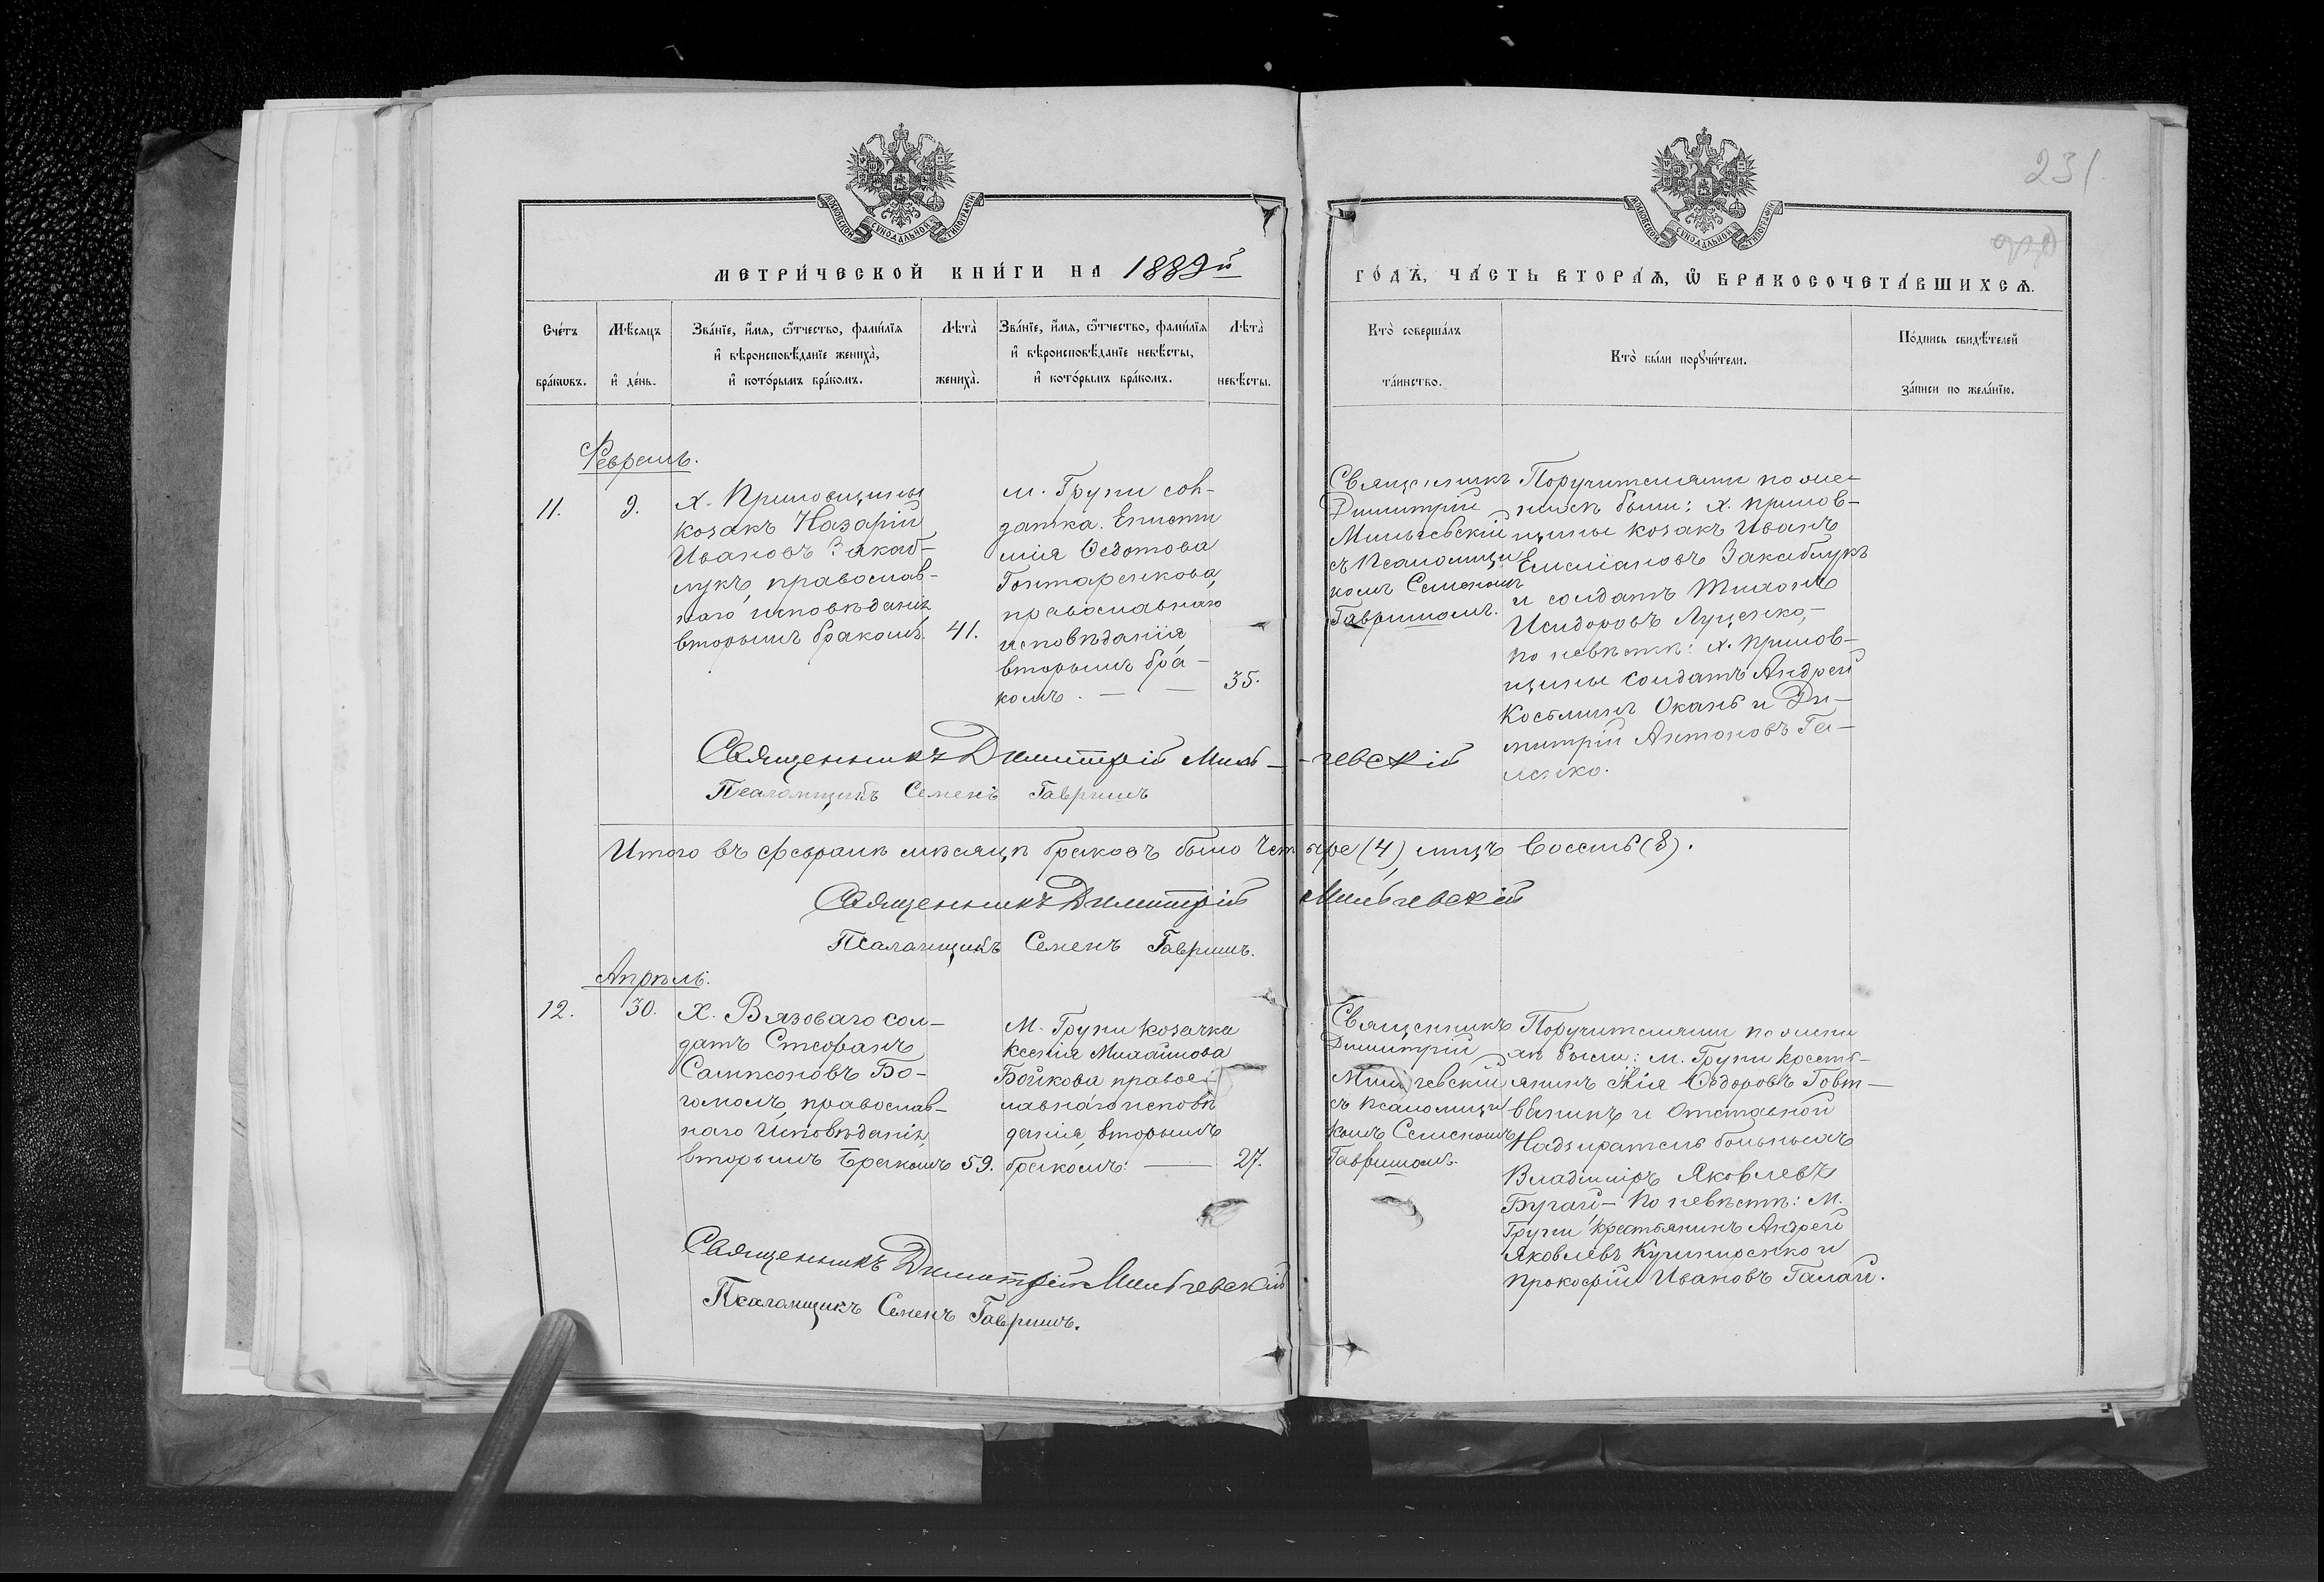 231.
МОСКОВСКОЙ СУНОДАЛЬНОЙ ТИПОГРАФІИ
МОСКОВСКОЙ СУНОДАЛЬНОЙ ТИПОГРАФІИ
МЕТРИ́ЧЕСКОЙ КНИ́ГИ НА 1889й
ГО́ДЪ, ЧА́СТЬ ВТОРА́Ѧ, Ѿ БРАКОСОЧЕТА́ВШИХСѦ.
Сче́тъ
бра́кѡвъ.
Мѣ́сѧцъ
и҆ де́нь.
Зва́нїе, и҆́мѧ, ѻ҆́тчество, фами́лїѧ
и҆ вѣроисповѣ́данїе жениха̀,
и҆ кото́рымъ бра́комъ.
Лѣ́та̀
жениха̀.
Зва́нїе, и҆́мѧ, ѻ҆́тчество, фами́лїѧ
и҆ вѣроисповѣ́данїе невѣ́сты,
и҆ кото́рымъ бра́комъ.
Лѣ́та̀
невѣ́сты.
Кто̀ соверша́лъ
та́инство.
Кто̀ бы́ли порꙋчи́тели.
По́дпись свидѣ́телей
за́писи по жела́нїю.
Февраль.
11.
9.
х. Примовщины
козакъ Назарій
Ивановъ Закаб-
лукъ, православ-
наго исповѣданія
вторымъ бракомъ.
41.
м. Груни сол-
датка
Ѳедотова
Гонтаренкова,
православнаго
исповѣданія,
вторымъ бра-
комъ. — —
35.
Священникъ
Димитрій
Мильчевскій
съ псаломщи
комъ Семеномъ
Гавришомъ.
Поручителями по же-
нихѣ были: х. Примов-
щины козакъ Иванъ
Емеліановъ Закаблукъ
и солдатъ Тихонъ
Исидоровъ Луценко,
по невѣстѣ: х. Примов-
щины солдатъ Андрей
Окань и Ди-
митрій Антоновъ Га-
ленко.
Священникъ Димитрій Миль-чевскій
Псаломщикъ Семенъ Гавришъ
Итого въ февралѣ мѣсяцѣ браковъ было четыре (4), лицъ восемь (8).
Священникъ Димитрій Мильчевскій
Псаломщикъ Семенъ Гавришъ.
Апрѣль.
12.
30.
Х. Вязоваго сол-
датъ Стефанъ
Сампсоновъ Бо-
гомолъ, православ-
наго исповѣданія,
вторымъ бракомъ
59.
М. Груни козачка
Ксенія Михайлова
Бойкова правос-
лавнаго исповѣ
данія, вторымъ
бракомъ: —
27.
Священникъ
Димитрій
Мильчевскій
съ псаломщи
комъ Семеномъ
Гавришомъ.
Поручителями по жени
хѣ были: м. Груни кресть-
янинъ Ѳедоровъ Говт-
и отставной
Надзиратель больныхъ
Владиміръ Яковлевъ
Бугай— По невѣстѣ: М.
Груни крестьянинъ Андрей
Яковлевъ Кушниренко и
Прокофій Ивановъ Галай.
Священникъ Димитрій Мильчевскій
Псаломщикъ Семенъ Гавришъ.